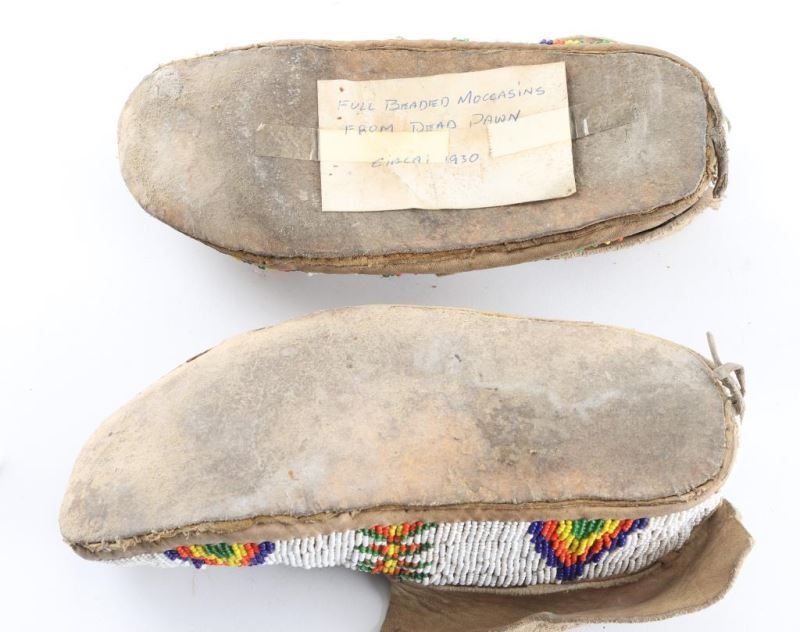 FULL BEADED MOCCASINS
FROM DEAD DAWN
CIRCA: 1930